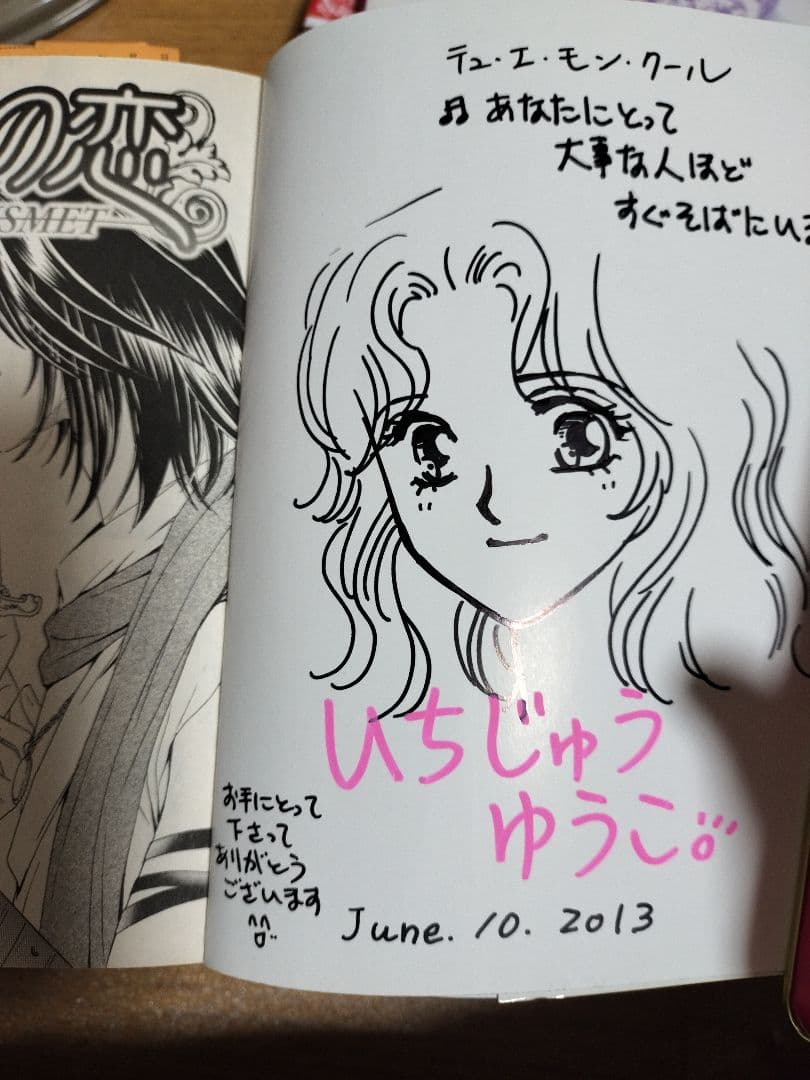 の恋
SMET
テュ・エ・モン・クール
♬ あなたにとって
大事な人ほど
すぐそばにいる
いちじゅう
ゆうこ
お手にとって
下さって
ありがとう
ございます
June. 10. 2013